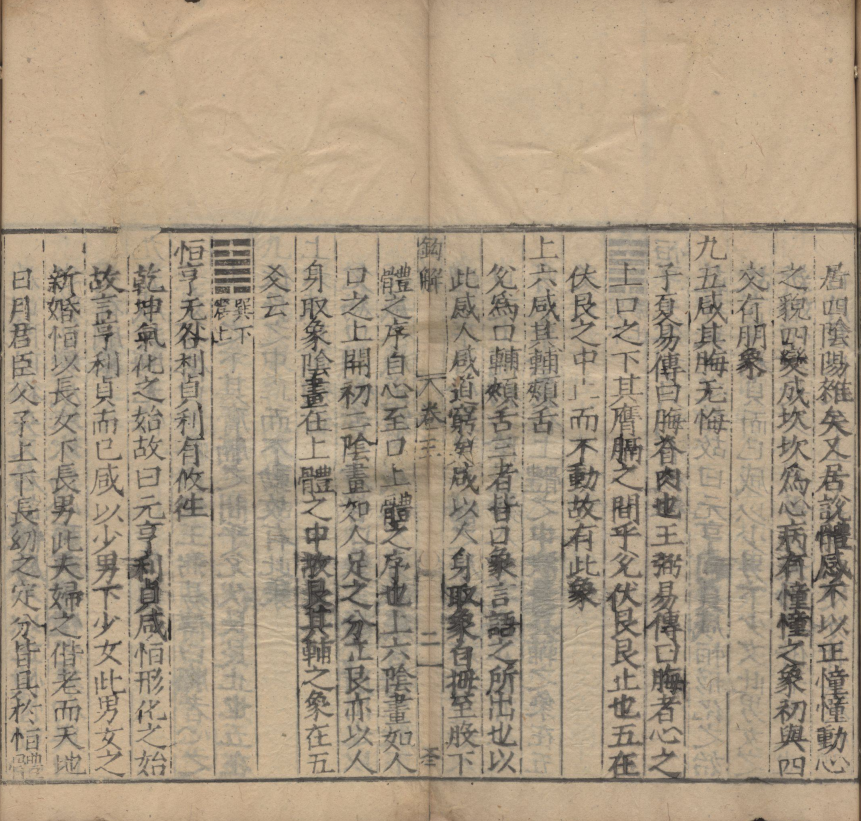 居四陰陽雜矣又居說體感不以正憧憧動心
之貌四變成坎坎為心病有憧憧之象初與四
交有朋象
九五咸其脢无悔
子夏易傳曰脢脊肉也王弼易傳曰脢者心之
上口之下其膺膈之間乎兊伏艮艮止也五在
伏艮之中止而不動故有此象
上六咸其輔頰舌
兊為口輔頰舌三者皆口象言語之所出也以
此感人感道窮矣咸以人身取象自拇至股下
卷三
體之序自心至口上體之序也上六陰畫如人
口之上開初二陰畫如人足之分上艮亦以人
身取象陰畫在上體之中故艮其輔之象在五
爻云
䷟
巽下
震上
恒亨无咎利貞利有攸往
乾坤氣化之始故曰元亨利貞咸恒形化之始
故言亨利貞而已咸以少男下少女此男女之
新婚恒以長女下長男此夫婦之偕老而天地
日月君臣父子上下長幼之定分皆具於恒體